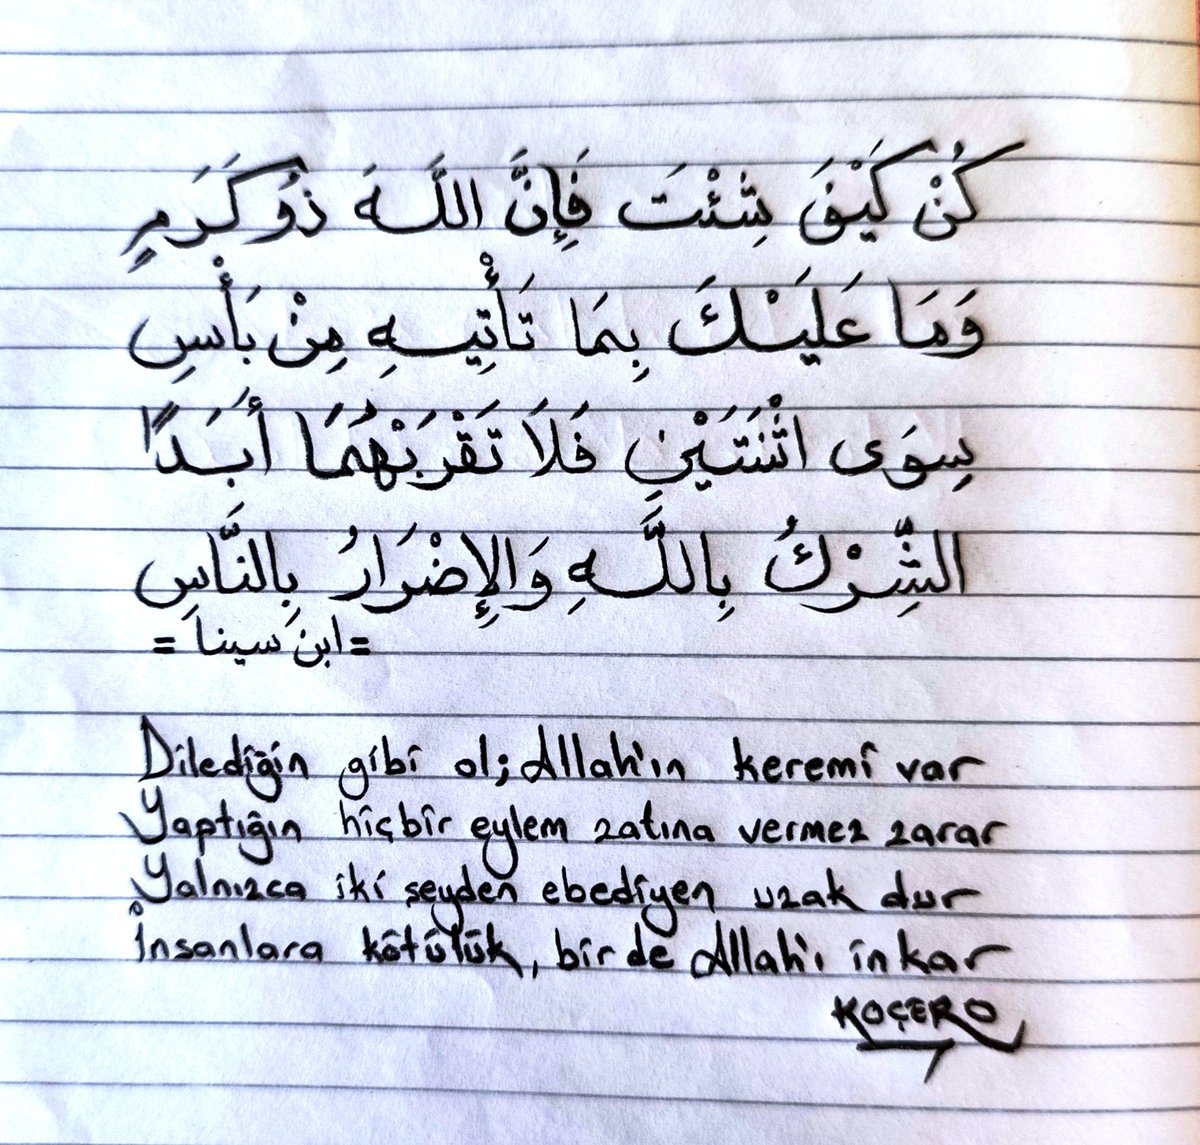 كُنْ كَيْفَ شِئْتَ فَإِنَّ اللَّهَ ذُو كَرَمٍ
وَمَا عَلَيْكَ بِمَا تَأْتِيهِ مِنْ بَأْسِ
سِوَى اثْنَتَيْنِ فَلَا تَقْرَبْهُمَا أَبَدًا
الشِّرْكُ بِاللَّهِ وَالإِضْرَارُ بِالنَّاسِ
=ابن سينا=
Dilediğin gibi ol; Allah'ın keremi var
Yaptığın hiçbir eylem zatına vermez zarar
Yalnızca iki şeyden ebediyen uzak dur
İnsanlara kötülük, bir de Allah'ı inkar
KOÇERO